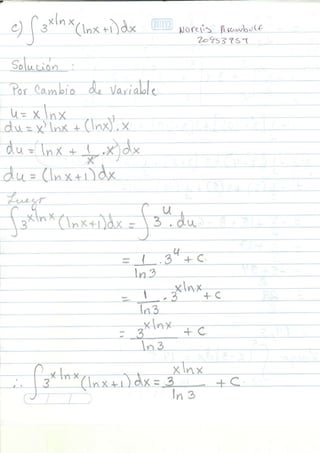 c) ∫ 3^{x ln x} (ln x + 1) dx Norelis Arambulet
20953959
Solución :
Por cambio de variable
u = x ln x
du = x' ln x + (ln x)'. x
du = (ln x + 1/x . x) dx
du = (ln x + 1) dx
Luego
∫ 3^{x ln x} (ln x + 1) dx = ∫ 3^u . du
= 1/ln 3 . 3^u + C
= 1/ln 3 . 3^{x ln x} + C
= 3^{x ln x}/ln 3 + C
∴ ∫ 3^{x ln x} (ln x + 1) dx = 3^{x ln x}/ln 3 + C.